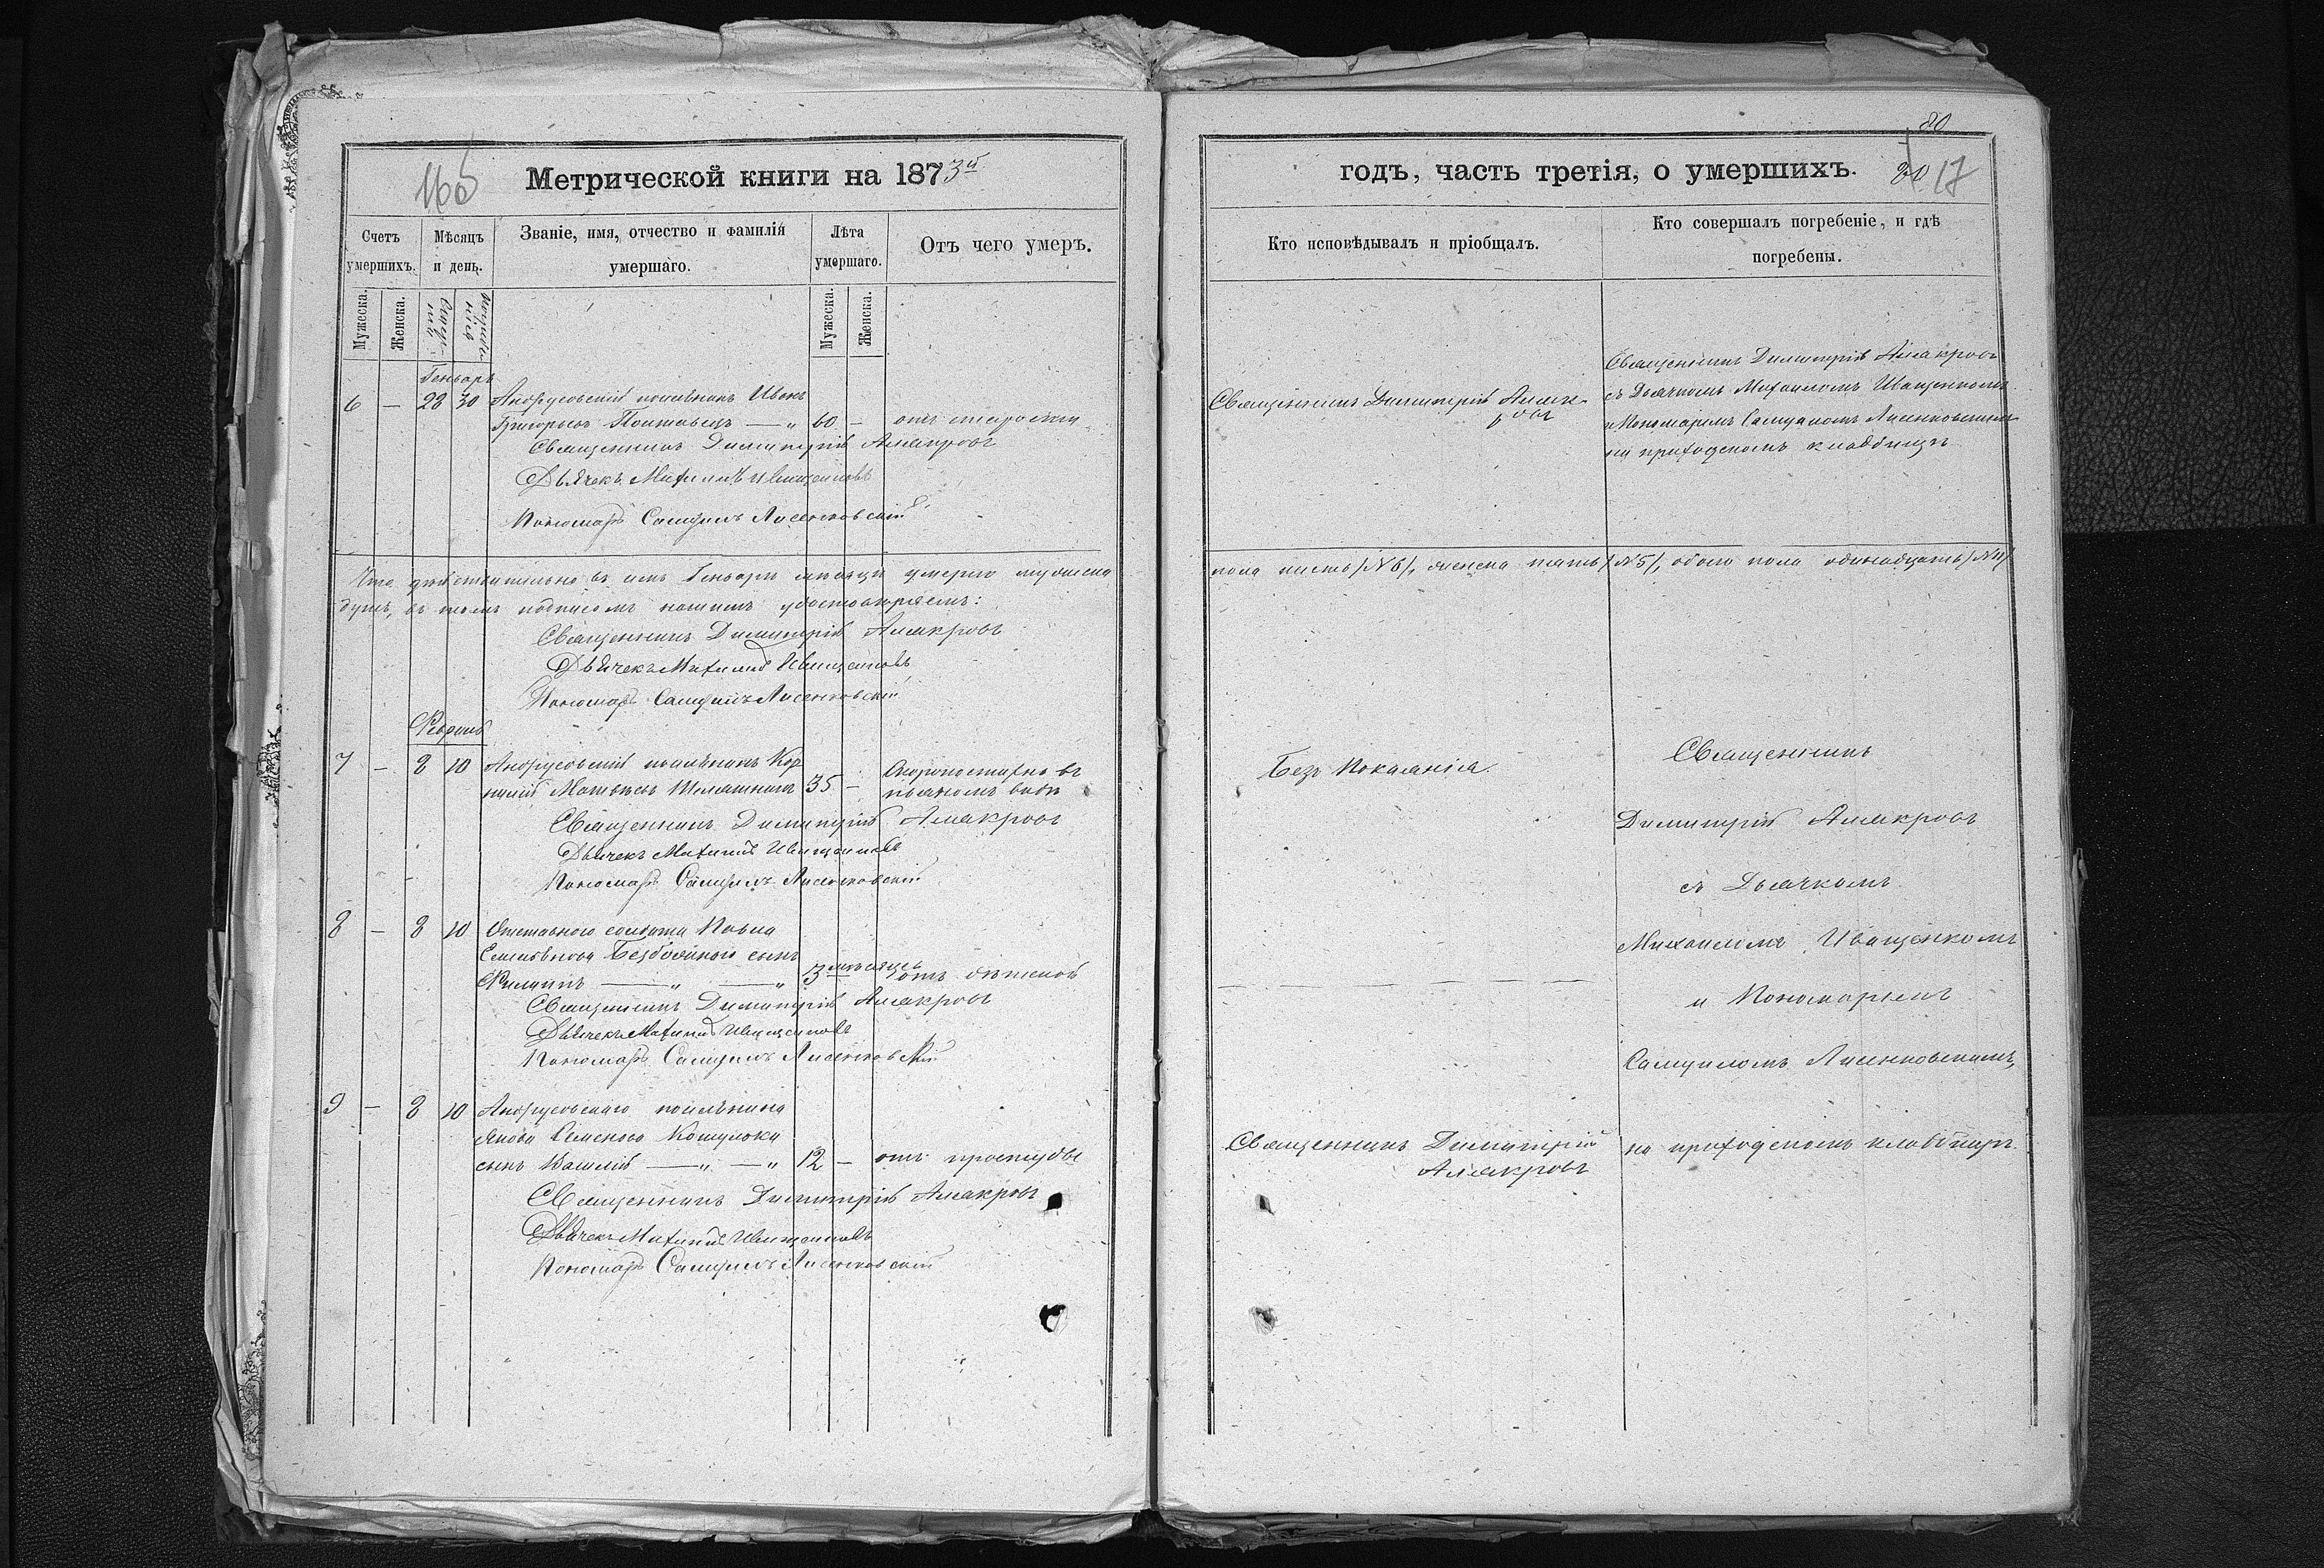 Метрической книги на 1873й
Счетъ умершихъ.
Мѣсяцъ и день.
Званіе, имя, отчество и фамилія умершаго.
Лѣта умершаго.
Отъ чего умеръ.
Мужеска.
Женска.
Мужеска.
Женска.
Генварь
6 — 28 30 Андрусовскій поселянинъ Иванъ
Григорьевъ — „ 60 — отъ старости
Священникъ Димитрій
Дьячекъ Михаилъ Иващенковъ
Пономарь Самуилъ Лисенковскій
Что дѣйствительно въ семъ Генварѣ мѣсяцѣ умерло мужеска
душъ, въ томъ подписомъ нашимъ удостовѣряемъ:
Священникъ Димитрій
Дьячекъ Михаилъ Иващенковъ
Пономарь Самуилъ Лисенковскій
Февраль
7 — 8 10 Андрусовскій поселянинъ Кор
нилій Матвѣевъ 35 — Скоропостижно въ
пьяномъ видѣ
Священникъ Димитрій
Дьячекъ Михаилъ Иващенковъ
Пономарь Самуилъ Лисенковскій
8 — 8 10 Отставного солдата Павла
сынъ
Филиппъ — „ — „ 3 мѣсяцевъ отъ
Священникъ Димитрій
Дьячекъ Михаилъ Иващенковъ
Пономарь Самуилъ Лисенковскій
9 — 8 10 Андрусовскаго поселянина
Якова Семенова
сынъ Василій — „ — „ 12 — отъ простуды
Священникъ Димитрій
Дьячекъ Михаилъ Иващенковъ
Пономарь Самуилъ Лисенковскій
80
годъ, часть третія, о умершихъ.
17
Кто исповѣдывалъ и пріобщалъ.
Кто совершалъ погребеніе, и гдѣ погребены.
Священникъ Димитрій
Священникъ Димитрій
съ Дьячкомъ Михаиломъ Иващенкомъ
и Пономаремъ Самуиломъ Лисенковскимъ
на приходскомъ кладбищѣ
пола шесть /№6/, женска пять /№5/, обоего пола одинадцать /№11/
Безъ Покаянія.
Священникъ
Димитрій
съ Дьячкомъ
Михаиломъ Иващенкомъ
и Пономаремъ
Самуиломъ Лисенковскимъ,
Священникъ Димитрій
на приходскомъ кладбищѣ.